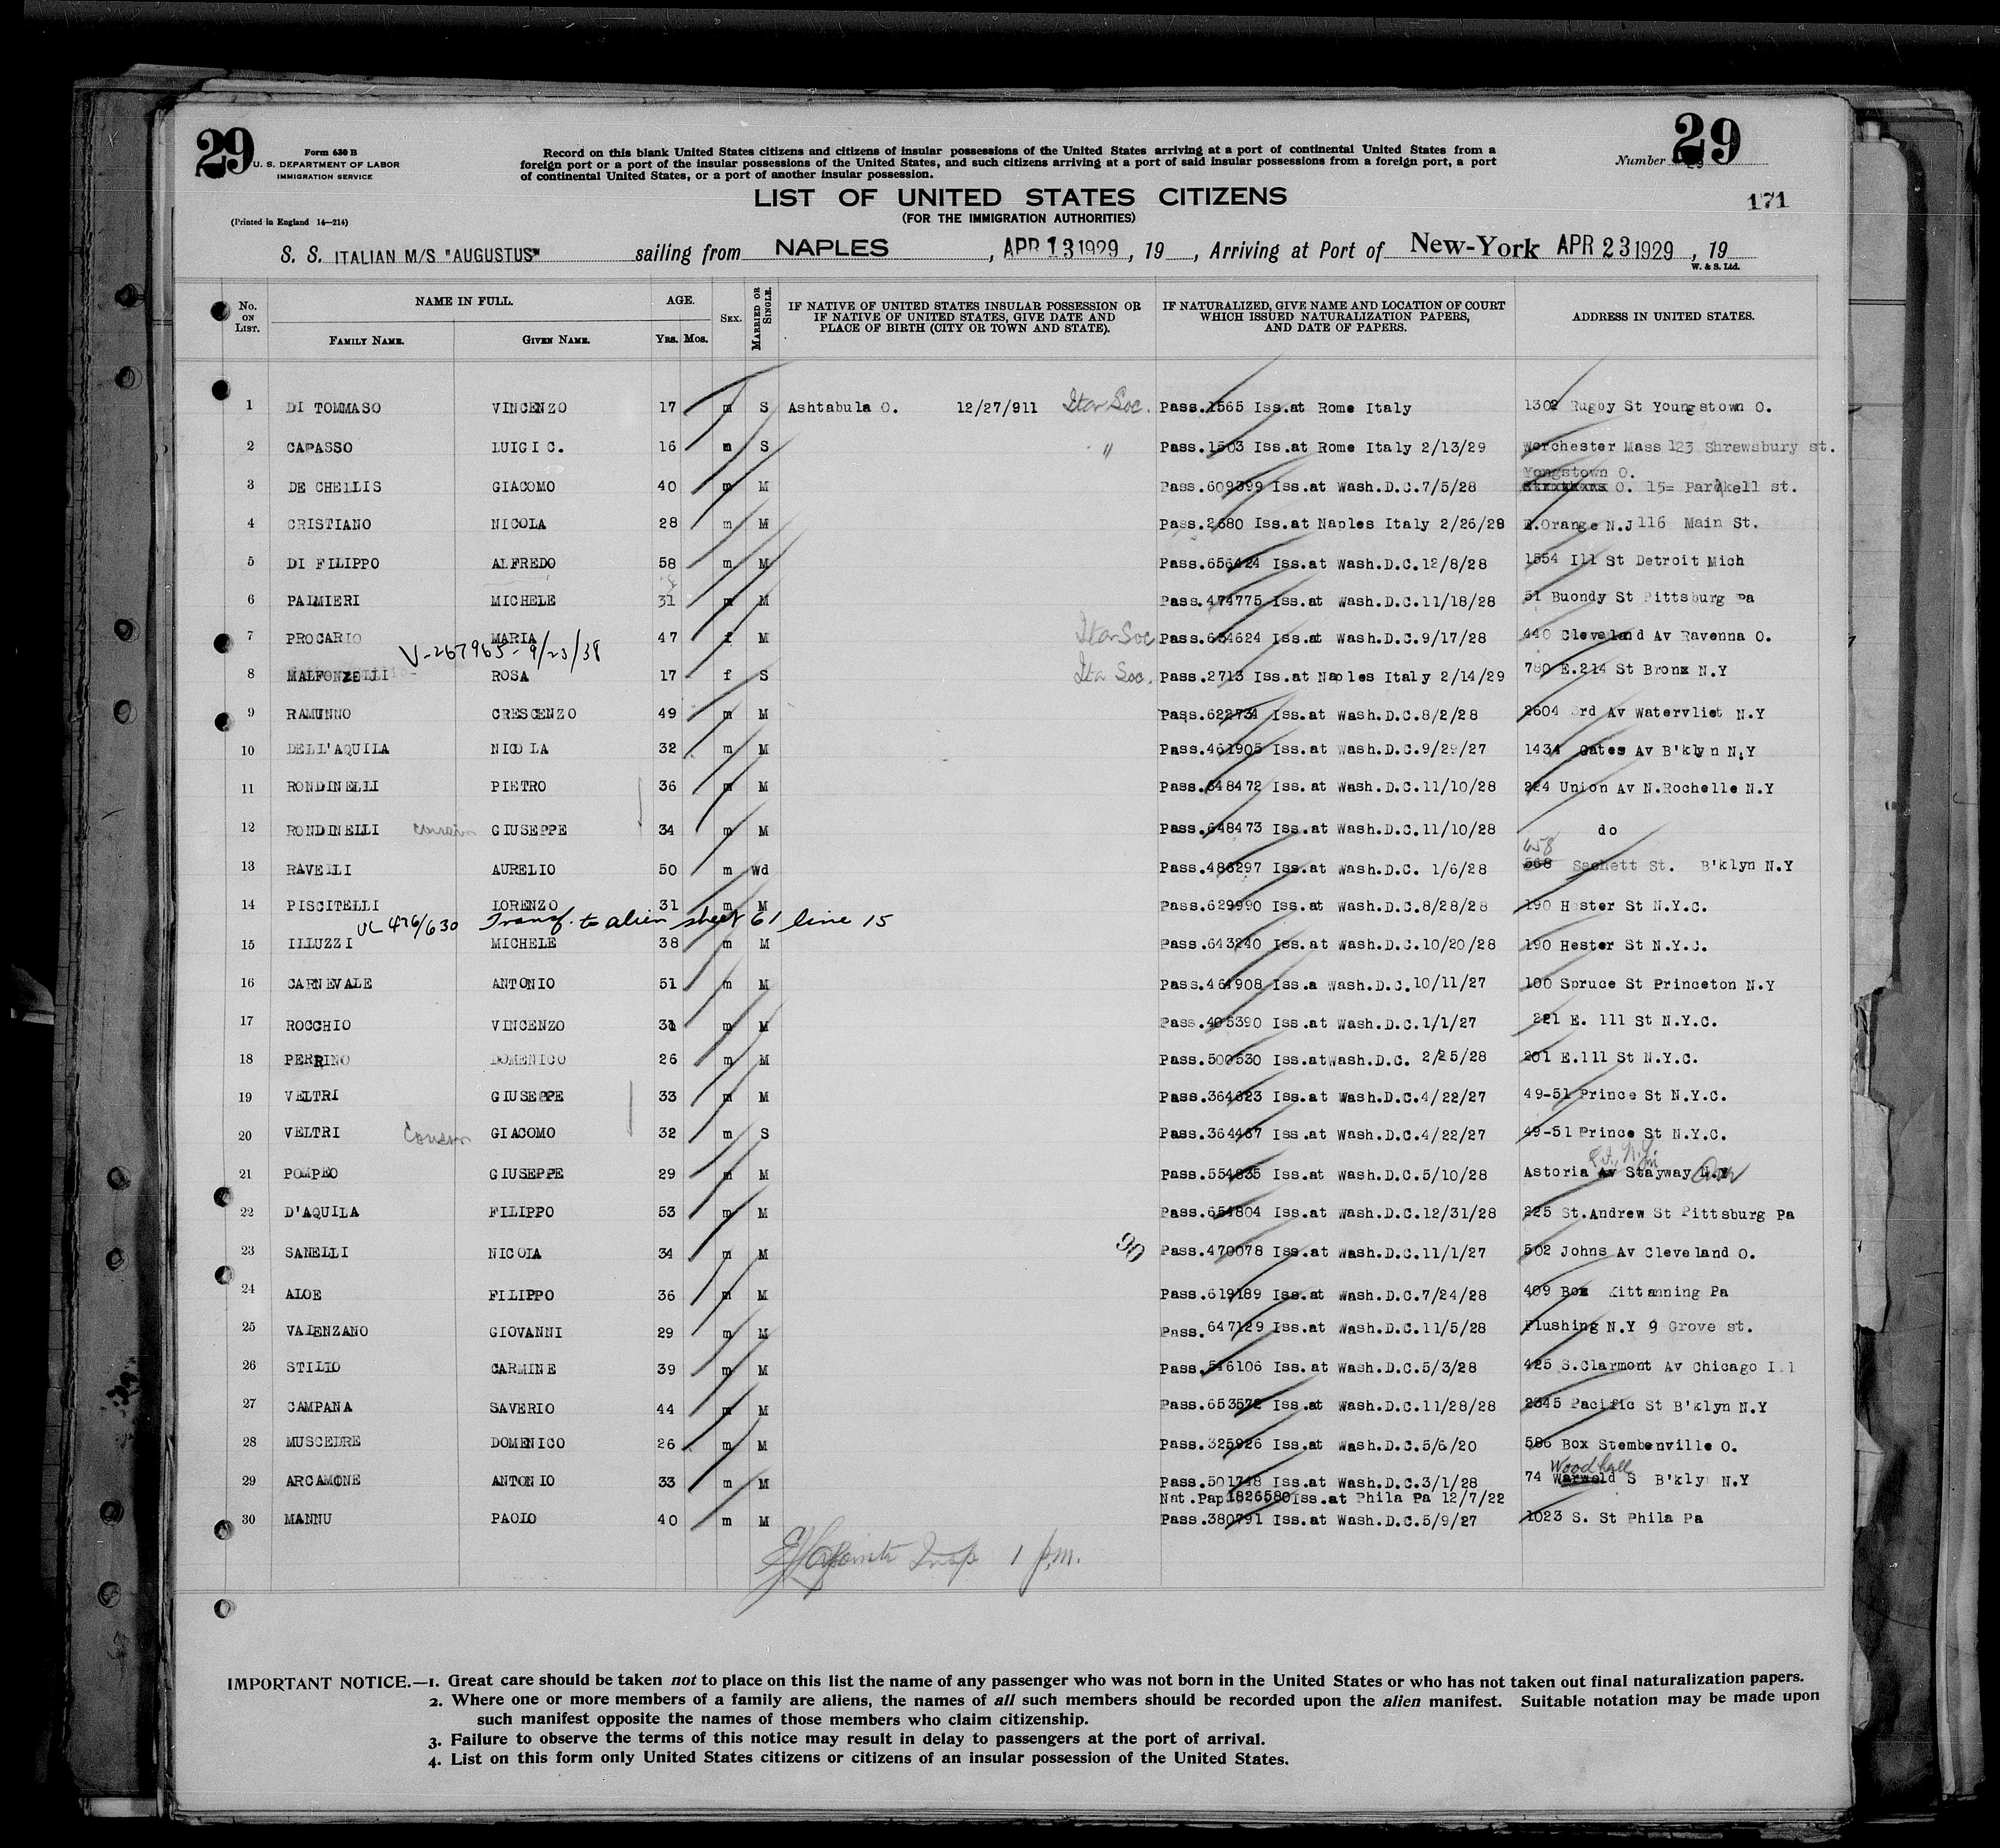 29
Form 630 B
U. S. DEPARTMENT OF LABOR
IMMIGRATION SERVICE
(Printed in England 14—214)
Record on this blank United States citizens and citizens of insular possessions of the United States arriving at a port of continental United States from a
foreign port or a port of the insular possessions of the United States, and such citizens arriving at a port of said insular possessions from a foreign port, a port
of continental United States, or a port of another insular possession.
Number 29
LIST OF UNITED STATES CITIZENS
(FOR THE IMMIGRATION AUTHORITIES)
171
S. S. ITALIAN M/S "AUGUSTUS" sailing from NAPLES, APR 13 1929, 19 , Arriving at Port of New-York APR 23 1929, 19
W. & S. Ltd.
No. ON LIST. NAME IN FULL. FAMILY NAME. GIVEN NAME. AGE. YRS. MOS. SEX. MARRIED OR SINGLE. IF NATIVE OF UNITED STATES INSULAR POSSESSION OR IF NATIVE OF UNITED STATES, GIVE DATE AND PLACE OF BIRTH (CITY OR TOWN AND STATE). IF NATURALIZED, GIVE NAME AND LOCATION OF COURT WHICH ISSUED NATURALIZATION PAPERS, AND DATE OF PAPERS. ADDRESS IN UNITED STATES.
1 DI TOMMASO VINCENZO 17 m S Ashtabula O. 12/27/911 Pass.1565 Iss.at Rome Italy 1302 Rugby St Youngstown O.
2 CAPASSO LUIGI C. 16 m S " Pass.1503 Iss.at Rome Italy 2/13/29 Worchester Mass 123 Shrewsbury st.
Yongstown O.
3 DE CHELLIS GIACOMO 40 m M Pass.609399 Iss.at Wash.D.C.7/5/28 O. 15= st.
4 CRISTIANO NICOLA 28 m M Pass.2680 Iss.at Naples Italy 2/26/28 E.Orange N.J 116 Main St.
5 DI FILIPPO ALFREDO 58 m M Pass.656424 Iss.at Wash.D.C.12/8/28 1554 Ill St Detroit Mich
6 PALMIERI MICHELE 31 m M Pass.474775 Iss.at Wash.D.C.11/18/28 51 Buondy St Pittsburg Pa
7 PROCARIO MARIA 47 f M Pass.634624 Iss.at Wash.D.C.9/17/28 440 Cleveland Av Ravenna O.
V-267965-9/23/38
8 MALFONZELLI ROSA 17 f S Pass.2713 Iss.at Naples Italy 2/14/29 780 E.214 St Bronx N.Y
9 RAMUNNO CRESCENZO 49 m M Pass.622734 Iss.at Wash.D.C.8/2/28 2604 3rd Av Watervliet N.Y
10 DELL'AQUILA NICOLA 32 m M Pass.461905 Iss.at Wash.D.C.9/29/27 1434 Gates Av B'klyn N.Y
11 RONDINELLI PIETRO 36 m M Pass.648472 Iss.at Wash.D.C.11/10/28 224 Union Av N.Rochelle N.Y
12 RONDINELLI GIUSEPPE 34 m M Pass.648473 Iss.at Wash.D.C.11/10/28 do
658
13 RAVELLI AURELIO 50 m Wd Pass.486297 Iss.at Wash.D.C. 1/6/28 568 Sachett St. B'klyn N.Y
14 PISCITELLI LORENZO 31 m M Pass.629990 Iss.at Wash.D.C.8/28/28 190 Hester St N.Y.C.
VL 476/630 Transf. to alien sheet 61 line 15
15 ILLUZZI MICHELE 38 m M Pass.643240 Iss.at Wash.D.C.10/20/28 190 Hester St N.Y.C.
16 CARNEVALE ANTONIO 51 m M Pass.461908 Iss.a Wash.D.C.10/11/27 100 Spruce St Princeton N.Y
17 ROCCHIO VINCENZO m M Pass.405390 Iss.at Wash.D.C.1/1/27 221 E. 111 St N.Y.C.
18 PERRINO DOMENICO 26 m M Pass.500530 Iss.atWash.D.C. 2/25/28 201 E.111 St N.Y.C.
19 VELTRI GIUSEPPE 33 m M Pass.364623 Iss.at Wash.D.C.4/22/27 49-51 Prince St N.Y.C.
20 VELTRI Cousin GIACOMO 32 m S Pass.364467 Iss.at Wash.D.C.4/22/27 49-51 Prince St N.Y.C.
21 POMPEO GIUSEPPE 29 m M Pass.554835 Iss.at Wash.D.C.5/10/28 Astoria Av Stayway N.Y
22 D'AQUILA FILIPPO 53 m M Pass.654804 Iss.at Wash.D.C.12/31/28 225 St.Andrew St Pittsburg Pa
23 SANELLI NICOLA 34 m M 90 Pass.470078 Iss.at Wash.D.C.11/1/27 502 Johns Av Cleveland O.
24 ALOE FILIPPO 36 m M Pass.619189 Iss.at Wash.D.C.7/24/28 409 Box Kittanning Pa
25 VALENZANO GIOVANNI 29 m M Pass.647129 Iss.at Wash.D.C.11/5/28 Flushing N.Y 9 Grove st.
26 STILIO CARMINE 39 m M Pass.546106 Iss.at Wash.D.C.5/3/28 425 S.Clarmont Av Chicago Ill
27 CAMPANA SAVERIO 44 m M Pass.653572 Iss.at Wash.D.C.11/28/28 2345 Pacific St B'klyn N.Y
28 MUSCEDRE DOMENICO 26 m M Pass.325926 Iss.at Wash.D.C.5/6/20 586 Box Stembenville O.
Woodhull
29 ARCAMONE ANTONIO 33 m M Pass.501748 Iss.at Wash.D.C.3/1/28 74 S B'kly N.Y
Nat.Pap.1826580Iss.at Phila Pa 12/7/22
30 MANNU PAOLO 40 m M Pass.380791 Iss.at Wash.D.C.5/9/27 1023 S. St Phila Pa
Insp 1 p.m.
IMPORTANT NOTICE.—1. Great care should be taken not to place on this list the name of any passenger who was not born in the United States or who has not taken out final naturalization papers.
2. Where one or more members of a family are aliens, the names of all such members should be recorded upon the alien manifest. Suitable notation may be made upon
such manifest opposite the names of those members who claim citizenship.
3. Failure to observe the terms of this notice may result in delay to passengers at the port of arrival.
4. List on this form only United States citizens or citizens of an insular possession of the United States.